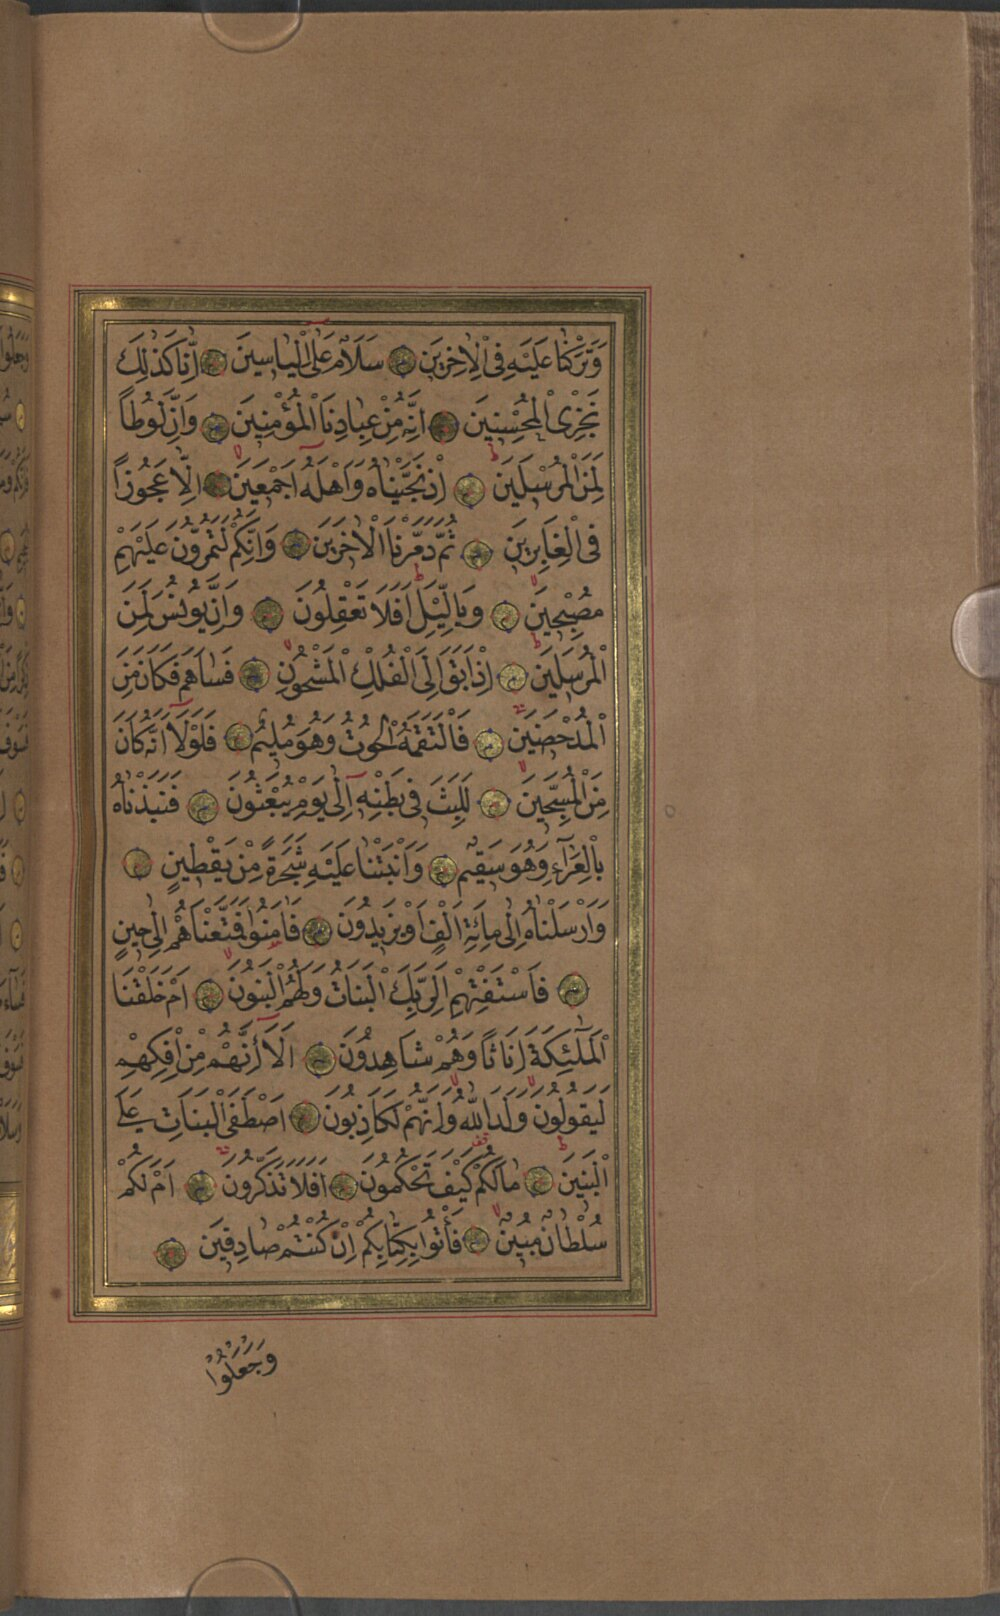 وَتَرَكْنَا عَلَيْهِ فِى الْاٰخِرِينَ سَلَامٌ عَلٰٓى اِلْيَاسِينَ اِنَّا كَذٰلِكَ
نَجْزِى الْمُحْسِنِينَ اِنَّهُ مِنْ عِبَادِنَا الْمُؤْمِنِينَ وَاِنَّ لُوطًا
لَمِنَ الْمُرْسَلِينَ اِذْ نَجَّيْنَاهُ وَاَهْلَهُٓ اَجْمَعِينَ اِلَّا عَجُوزًا
فِى الْغَابِرِينَ ثُمَّ دَمَّرْنَا الْاٰخَرِينَ وَاِنَّكُمْ لَتَمُرُّونَ عَلَيْهِمْ
مُصْبِحِينَ وَبِالَّيْلِ اَفَلَا تَعْقِلُونَ وَاِنَّ يُونُسَ لَمِنَ
الْمُرْسَلِينَ اِذْ اَبَقَ اِلَى الْفُلْكِ الْمَشْحُونِ فَسَاهَمَ فَكَانَ مِنَ
الْمُدْحَضِينَ فَالْتَقَمَهُ الْحُوتُ وَهُوَ مُلِيمٌ فَلَوْلَٓا اَنَّهُ كَانَ
مِنَ الْمُسَبِّحِينَ لَلَبِثَ فِى بَطْنِهِٓ اِلٰى يَوْمِ يُبْعَثُونَ فَنَبَذْنَاهُ
بِالْعَرَٓاءِ وَهُوَ سَقِيمٌ وَاَنْبَتْنَا عَلَيْهِ شَجَرَةً مِنْ يَقْطِينٍ
وَاَرْسَلْنَاهُ اِلٰى مِائَةِ اَلْفٍ اَوْ يَزِيدُونَ فَاٰمَنُوا فَمَتَّعْنَاهُمْ اِلٰى حِينٍ
فَاسْتَفْتِهِمْ اَلِرَبِّكَ الْبَنَاتُ وَلَهُمُ الْبَنُونَ اَمْ خَلَقْنَا
الْمَلٰٓئِكَةَ اِنَاثًا وَهُمْ شَاهِدُونَ اَلَٓا اِنَّهُمْ مِنْ اِفْكِهِمْ
لَيَقُولُونَ وَلَدَ اللّٰهُ وَاِنَّهُمْ لَكَاذِبُونَ اَصْطَفَى الْبَنَاتِ عَلَى
الْبَنِينَ مَالَكُمْ كَيْفَ تَحْكُمُونَ اَفَلَا تَذَكَّرُونَ اَمْ لَكُمْ
سُلْطَانٌ مُبِينٌ فَأْتُوا بِكِتَابِكُمْ اِنْ كُنْتُمْ صَادِقِينَ
وَجَعَلُوا